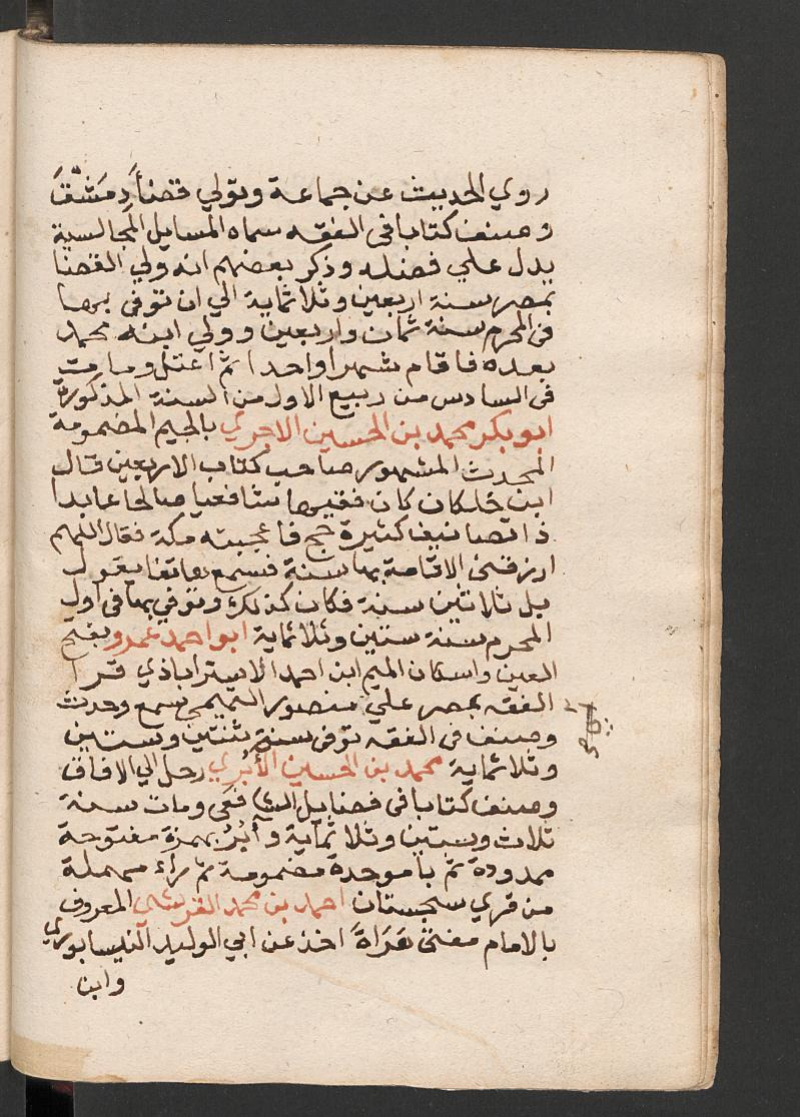 روي الحديث عن جماعة وتولي قضنأَ دِمَشقَ
وصنف كتابا فى الفقه سماه المسايل المجالسية
يدل علي فضله وذكر بعضهم انه ولي القضا
بمصر سنة اربعين وثلاثماية الي ان توفى بها
فى المحرم سنة ثمان واربعين وولي ابنه محمد
بعده فاقام شهرا واحدا ثم اعتل ومات
فى السادس من ربيع الاول من السنة المذكورة
ابو بكر محمد بن الحسين الاجري بالجيم المضمومة
المحدث المشهور صاحب كتاب الاربعين قال
ابن خلكان كان فقيها شافعيا صالحا عابدا
ذا تصانيف كثيرة حج فاعجبته مكة فقال اللهم
ارزقنى الاقامة بها سنة فسمع هاتفا يقول
بل ثلاثين سنة فكان كذلك وتوفي بها فى اول
المحرم سنة ستين وثلاثماية ابو احمد عمرو بفتح
العين واسكان الميم ابن احمد الاستراباذي قرا
الفقه بمصر علي منصور التميمي سمع وحدث
وصنف فى الفقه توفى سنة ثنتين وستين
وثلاثماية محمد بن الحسين الأبُري رحل الي الافاق
وصنف كتابا فى فضايل الشافعى ومات سنة
ثلاث وستين وثلاثماية وأبُرُ بهمزة مفتوحة
ممدودة ثم با موحدة مضمومة ثم راء مهملة
من قري سجستان احمد بن محمد القريشي المعروف
بالامام مفتى هَرَاةَ اخذ عن ابي الوليد النيسابوري
وابن